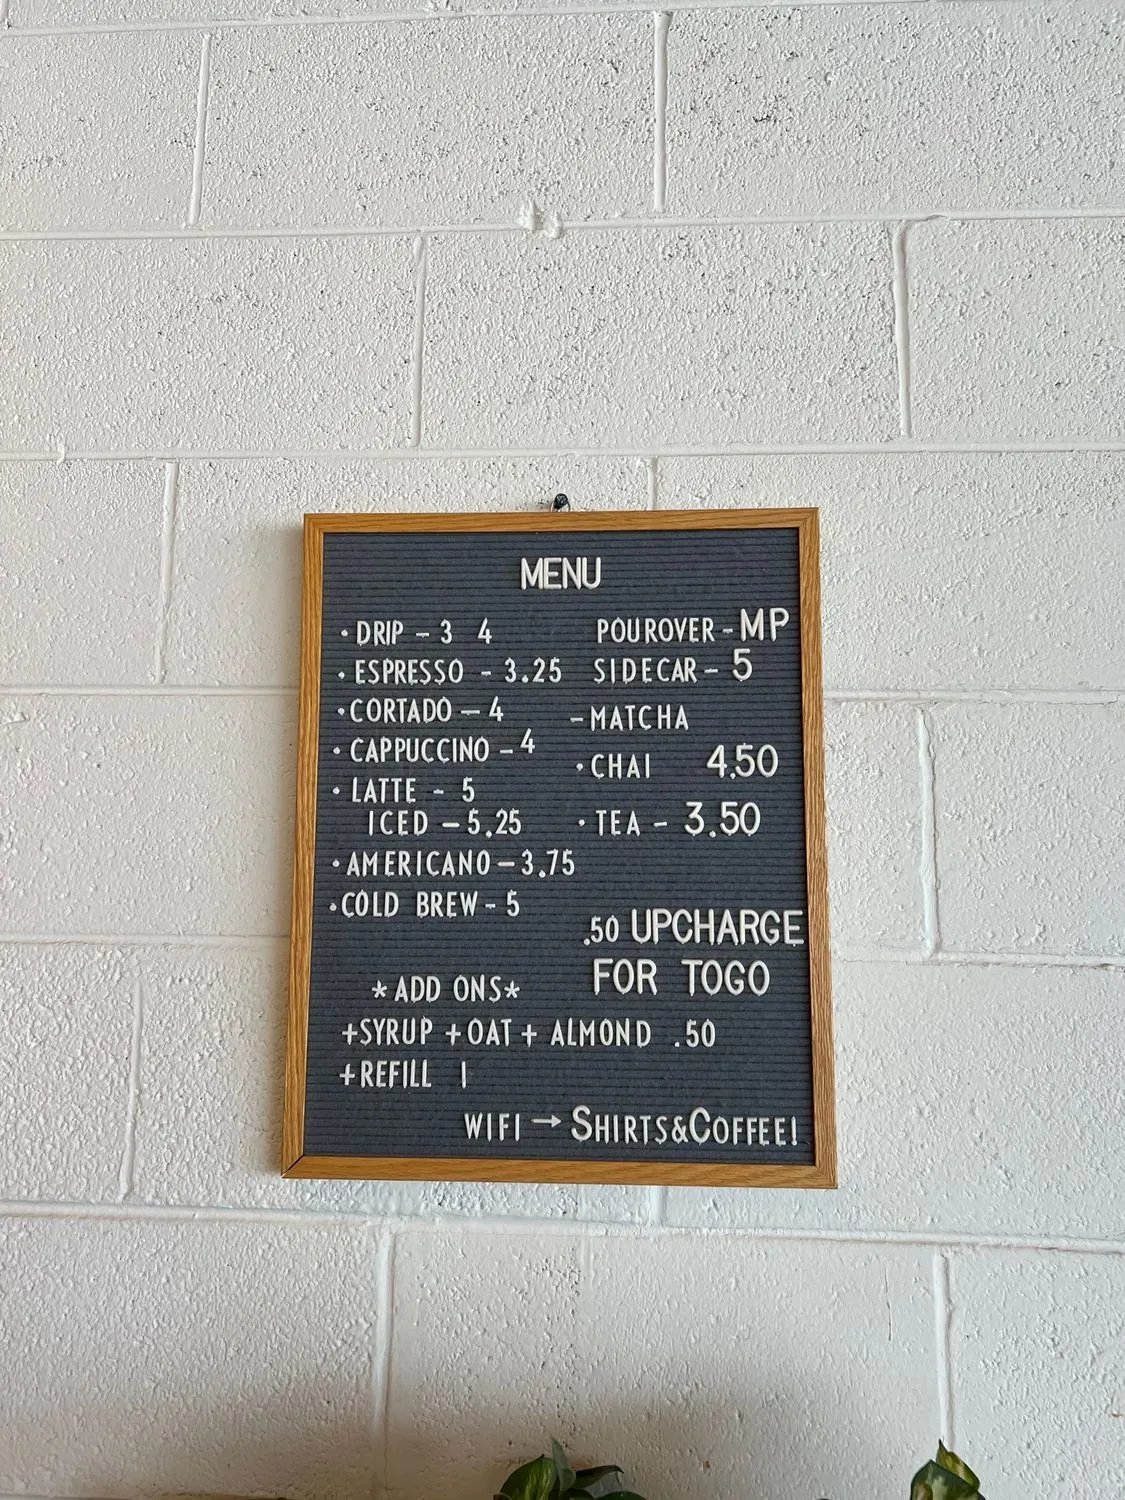 MENU
• DRIP – 3 4
• ESPRESSO – 3.25
• CORTADO – 4
• CAPPUCCINO – 4
• LATTE – 5
ICED – 5.25
• AMERICANO – 3.75
• COLD BREW – 5
POUROVER – MP
SIDECAR – 5
– MATCHA
• CHAI 4.50
• TEA – 3.50
.50 UPCHARGE
FOR TOGO
* ADD ONS *
+SYRUP +OAT + ALMOND .50
+REFILL 1
WIFI → SHIRTS&COFFEE!